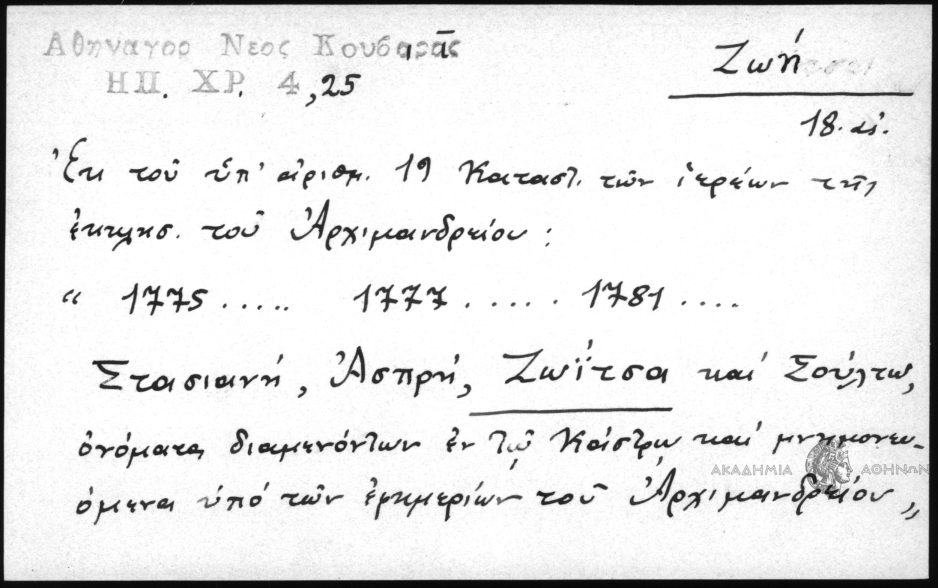 Αθηναγορ Νεος Κουβαρᾶς
ΗΠ. ΧΡ. 4,25
Ζωή
18. αἰ.
Ἐκ τοῦ ὑπ' ἀριθμ. 19 Καταστ. τῶν ἱερέων τῆς
ἐκκλησ. τοῦ Ἀρχιμανδρείου :
" 1775 ..... 1777 ...... 1781 ....
Στασιανή, Ἀσπρή, Ζωΐτσα καί Σούλτω,
ὀνόματα διαμενόντων ἐν τῷ Κάστρῳ καί μνημονευ-
όμενα ὑπό τῶν ἐφημερίων τοῦ Ἀρχιμανδρείου "
ΑΚΑΔΗΜΙΑ ΑΘΗΝΩΝ